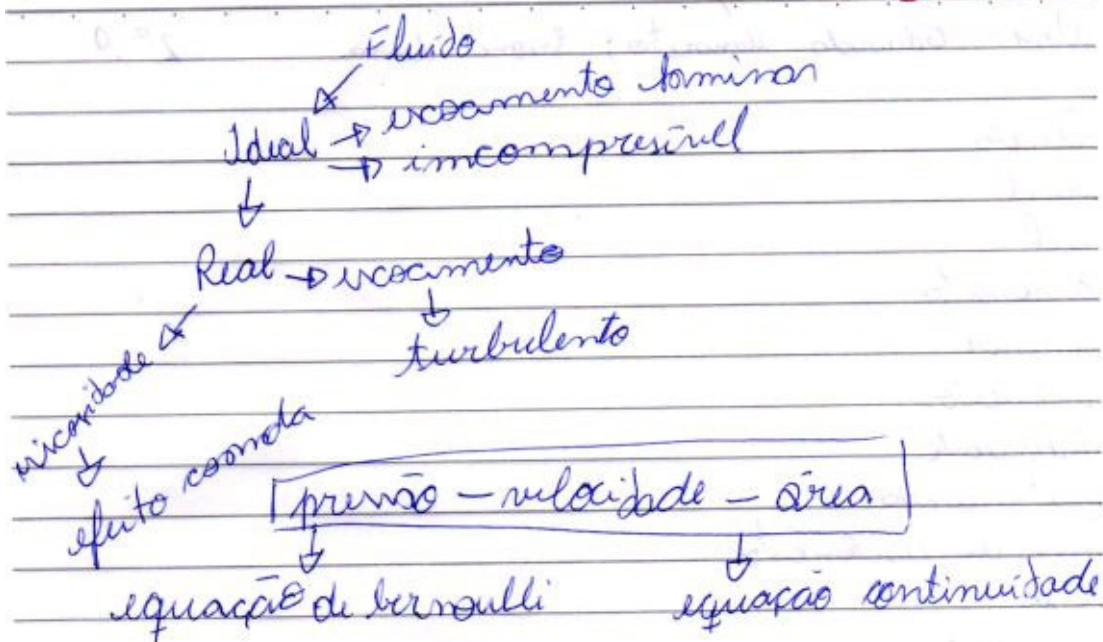 Fluido
Ideal → escoamento laminar
→ imcompresível
Real → escoamento
turbulento
viscosidade
efeito coanda
pressão – velocidade – área
equação de bernoulli equação continuidade